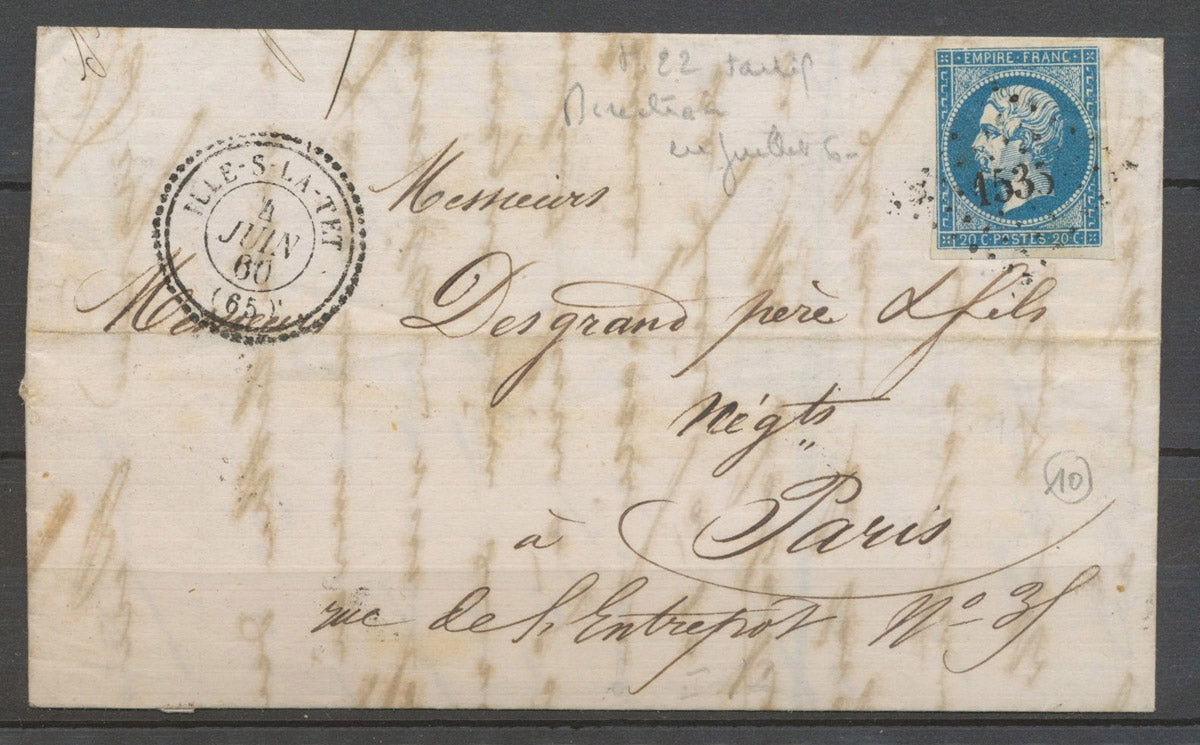 22
en juillet
EMPIRE · FRANC ·
1535
20 C POSTES 20 C
ILLE-S-LA-TET
4
JUIN
60
(65)
Messieurs
Desgrand père & fils
Négts
à Paris
10
rue de l'Entrepôt No 35